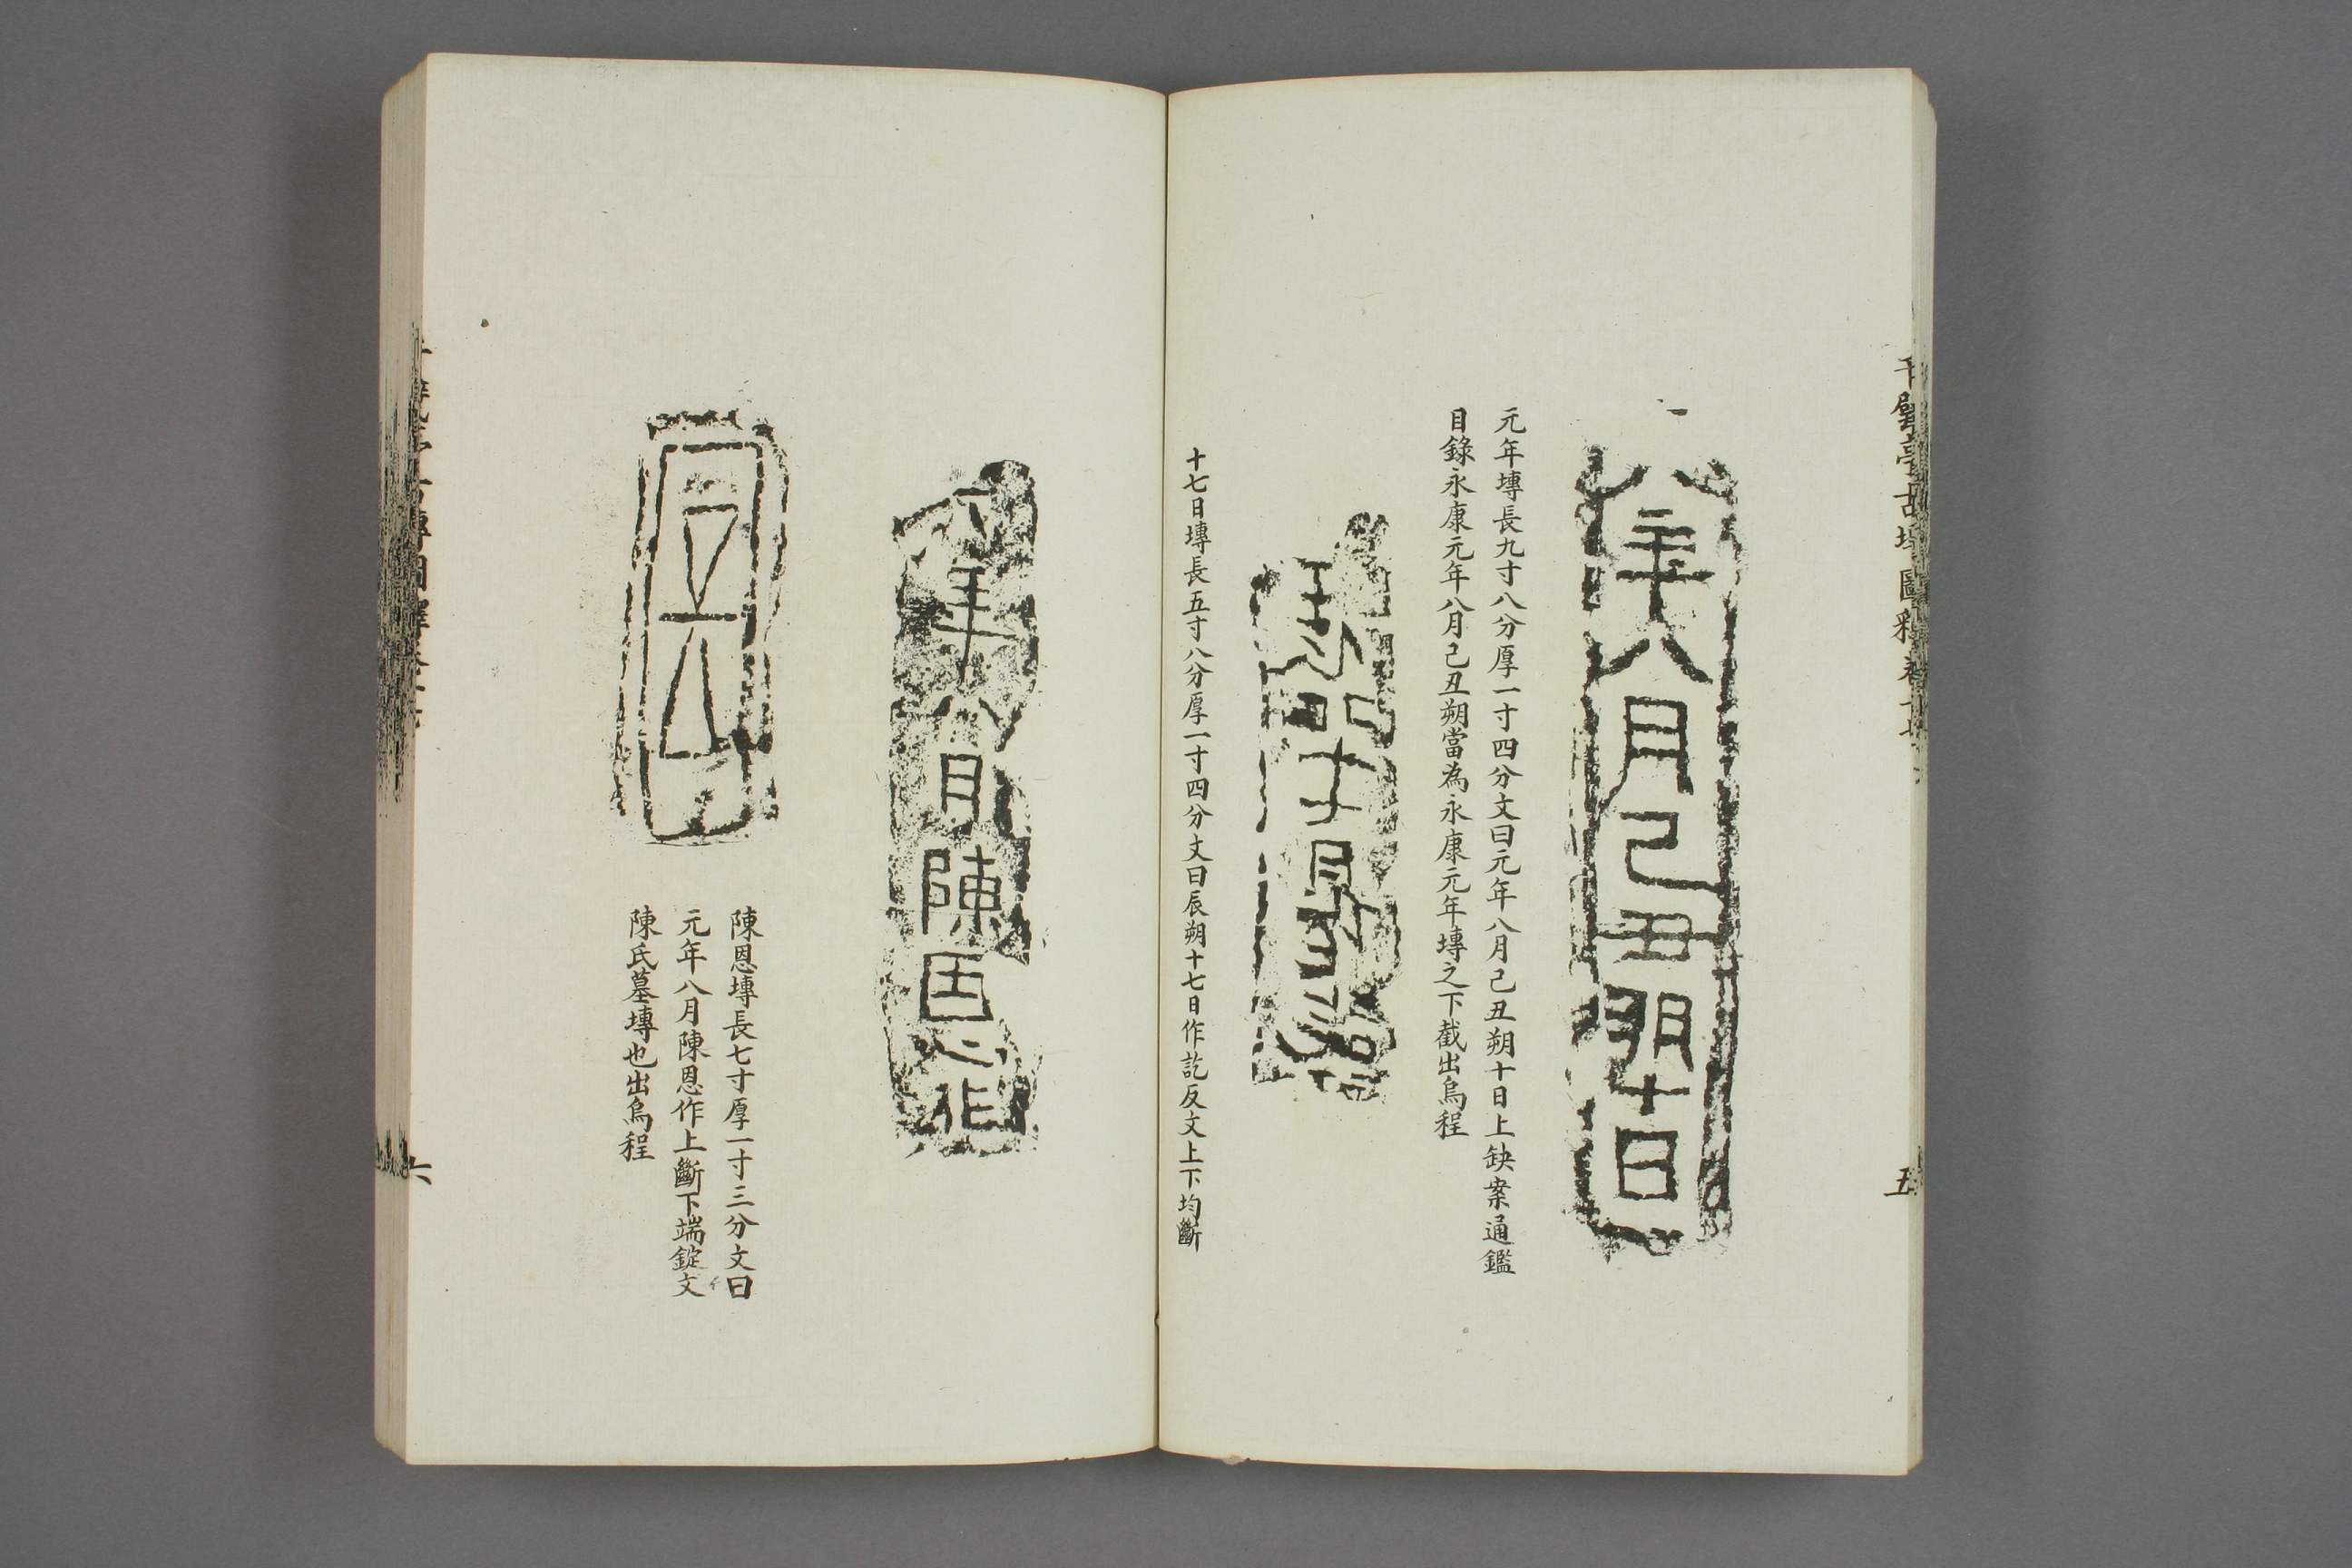 千甓亭古塼圖釋卷十六
五
元年八月己丑朔十日
元年塼長九寸八分厚一寸四分文曰元年八月己丑朔十日上缺案通鑑
目錄永康元年八月己丑朔當為永康元年塼之下截出烏程
辰朔十七日作訖
十七日塼長五寸八分厚一寸四分文曰辰朔十七日作訖反文上下均斷
元年八月陳恩作
陳恩塼長七寸厚一寸三分文曰
元年八月陳恩作上斷下端錠文
陳氏墓塼也出烏程
六